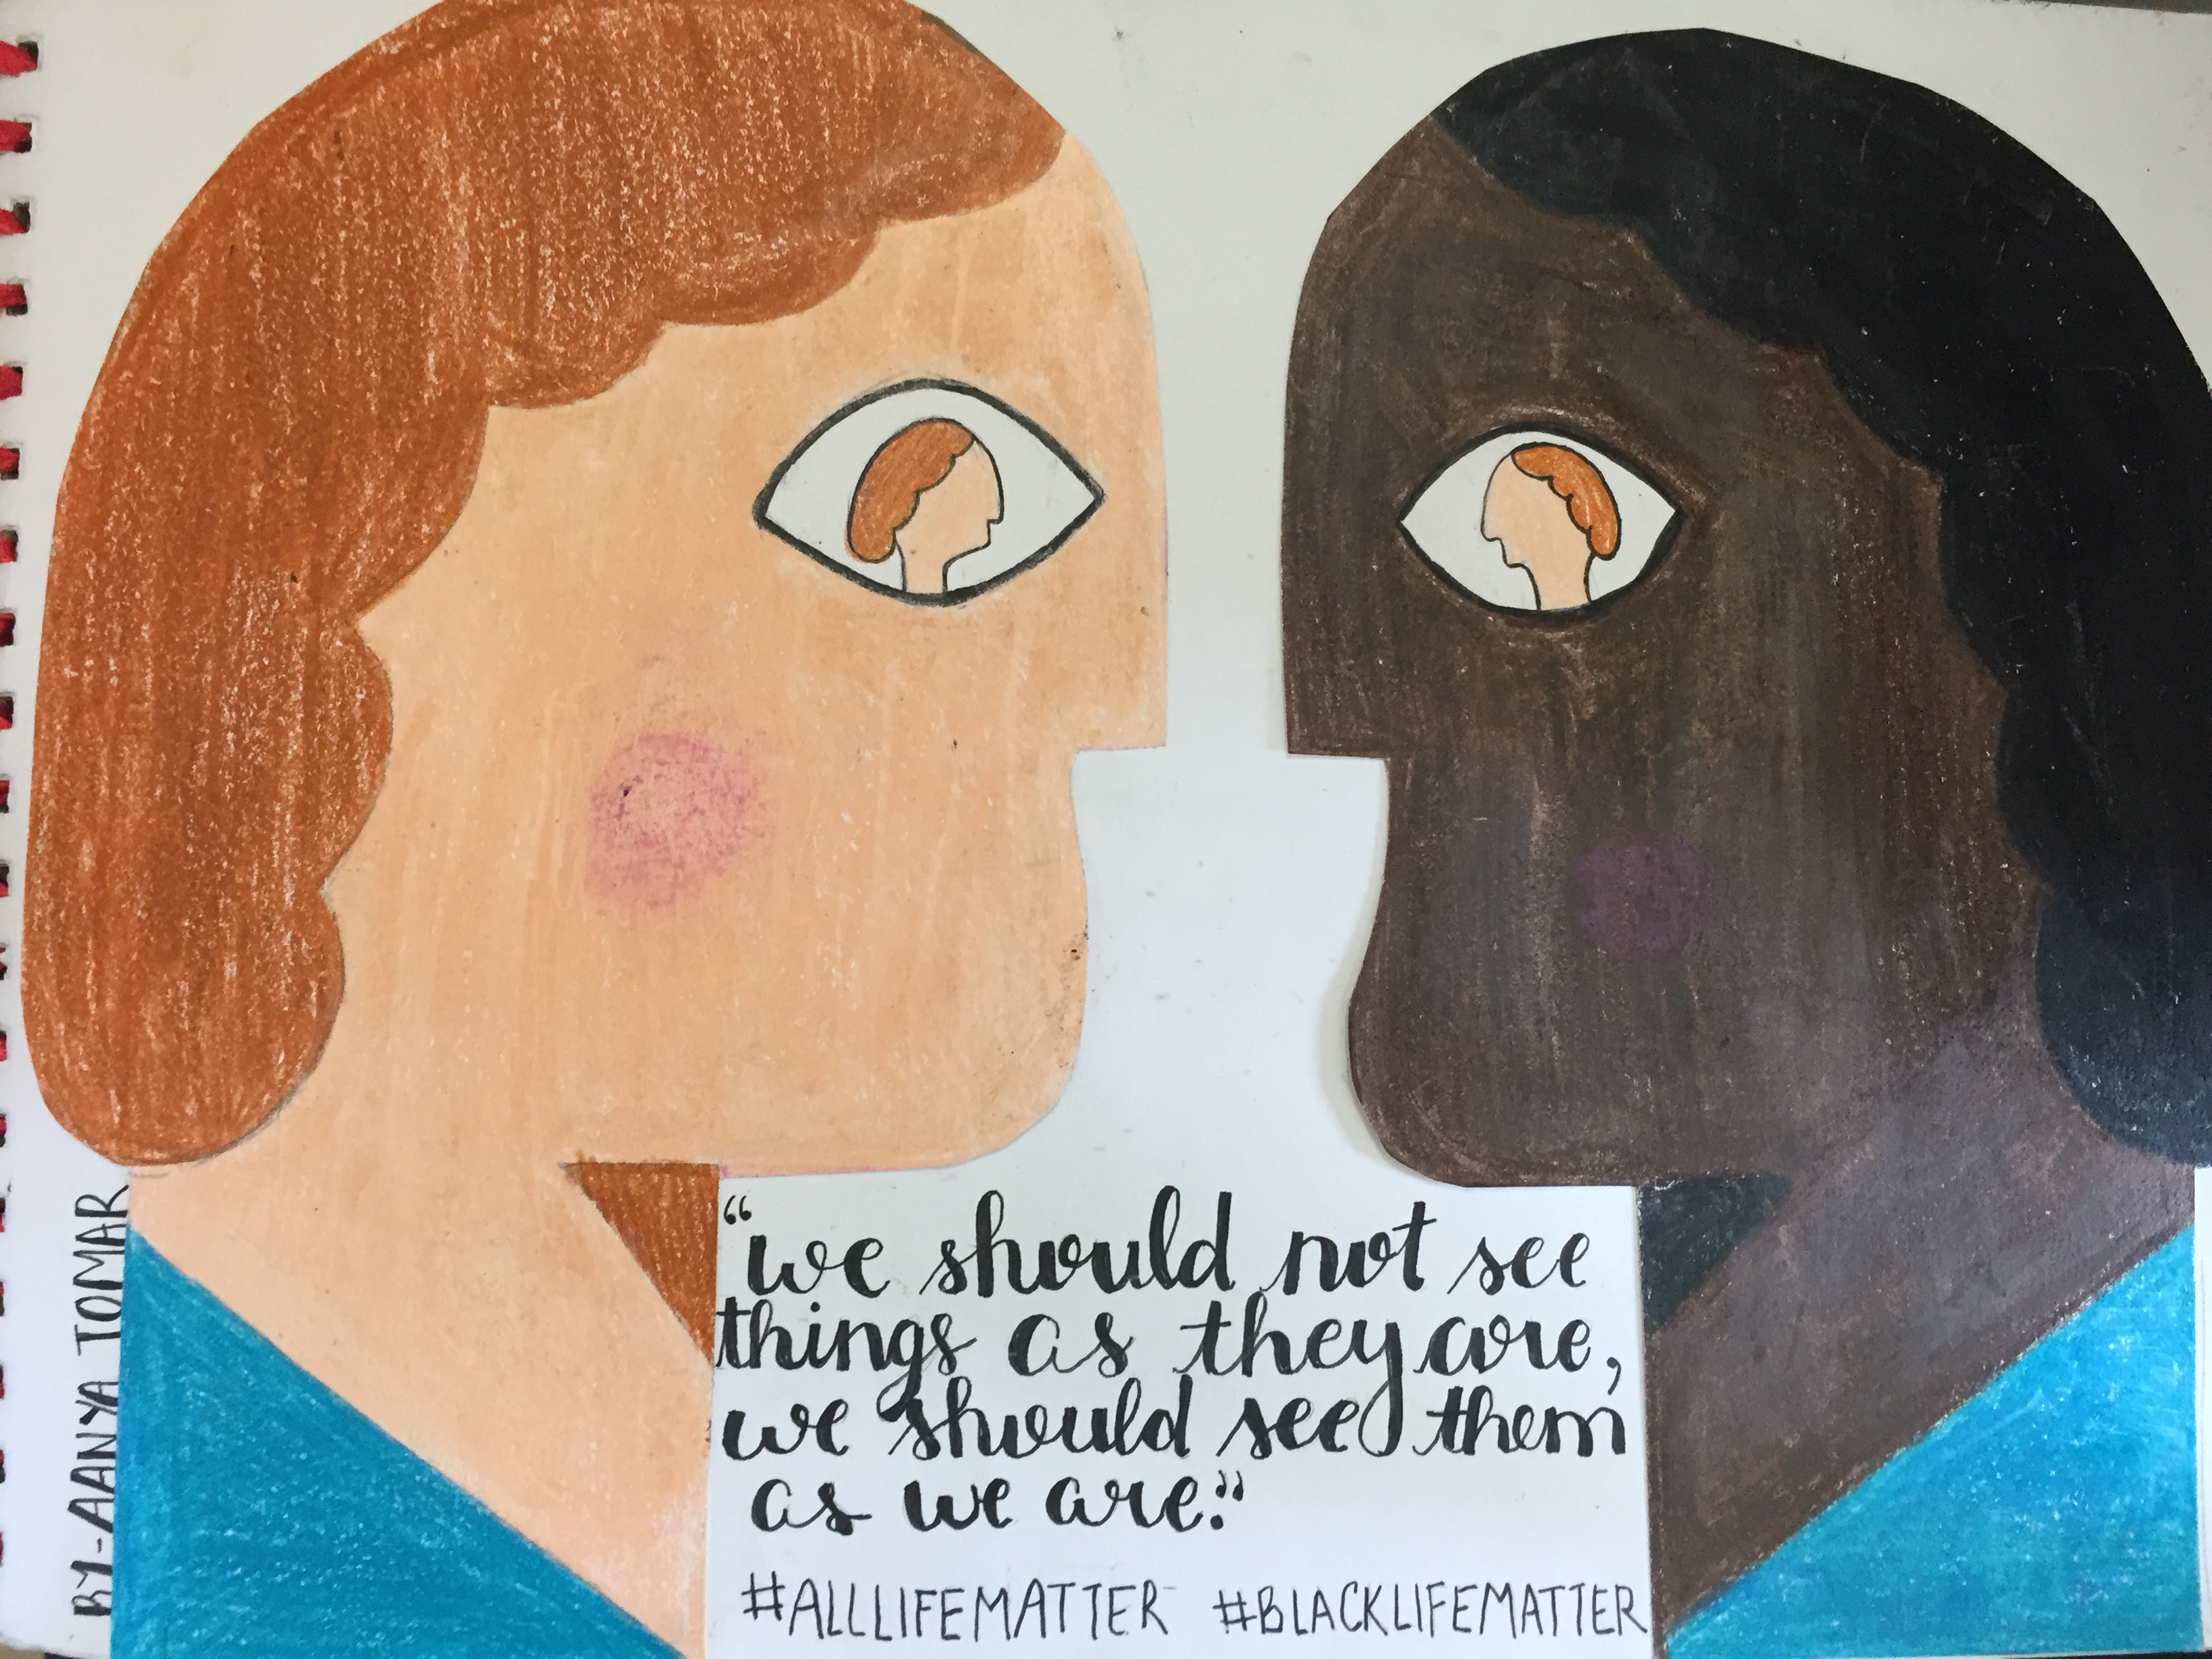 BY-AANYA TOMAR
"we should not see
things as they are,
we should see them
as we are."
#ALLLIFEMATTER #BLACKLIFEMATTER